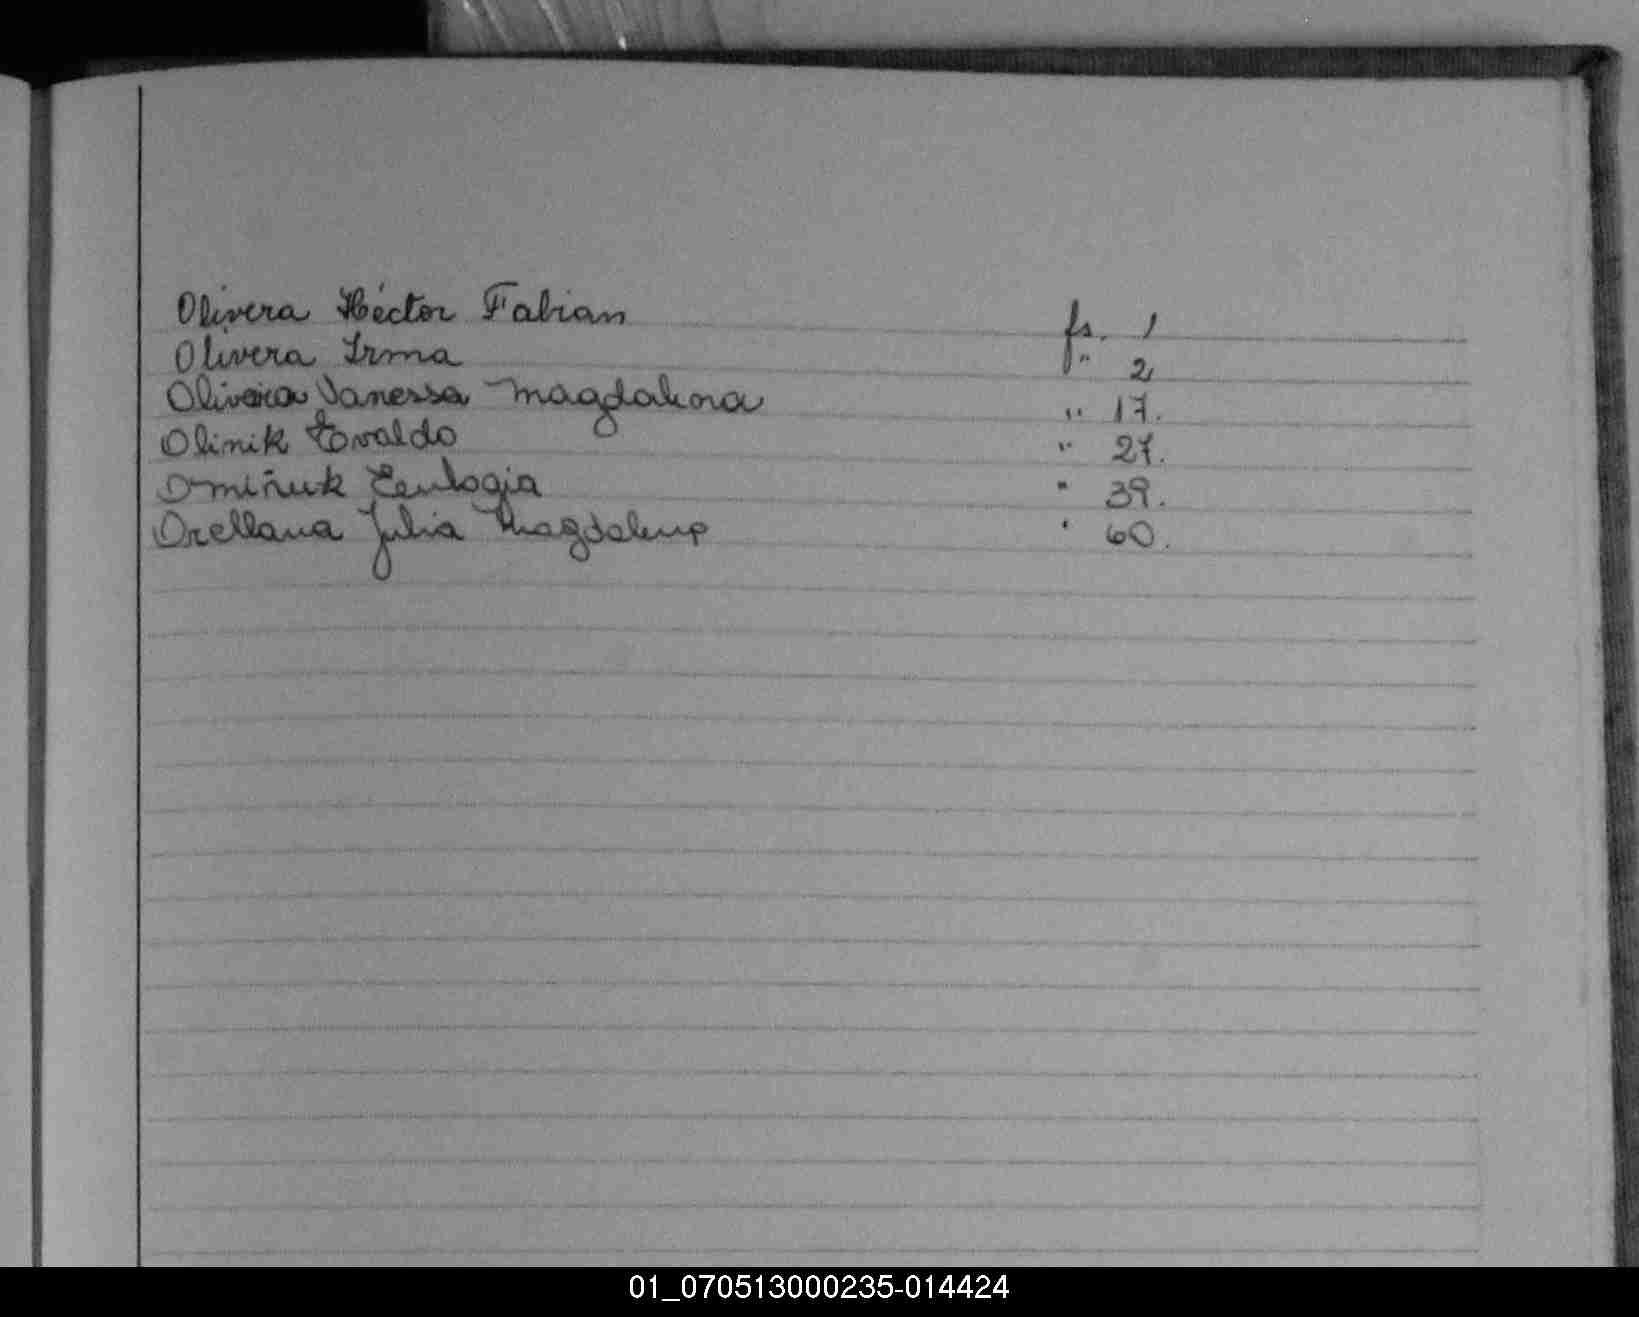 Olivera Héctor Fabian fs. 1
Olivera Irma " 2
Oliveira Vanessa Magdalena " 17.
Olinik Evaldo " 27.
Omiñuk Eulogia " 39.
Orellana Julia Magdalena " 60.
01_070513000235-014424